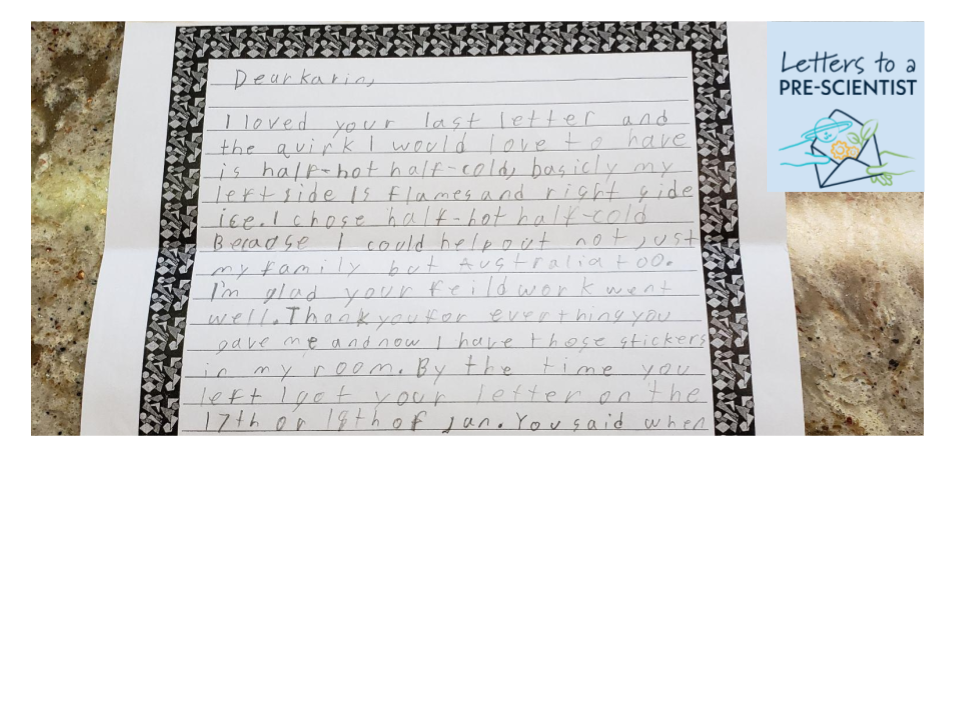 Dear Karin,
I loved your last letter and
the quirk I would love to have
is half-hot half-cold, basicly my
left side Is flames and right side
ice. I chose half-hot half-cold
Because I could help out not just
my family but Australia too.
I'm glad your feild work went
well. Thank you for everthing you
gave me and now I have those stickers
in my room. By the time you
left I got your letter on the
17th or 18th of Jan. You said when
Letters to a
PRE-SCIENTIST